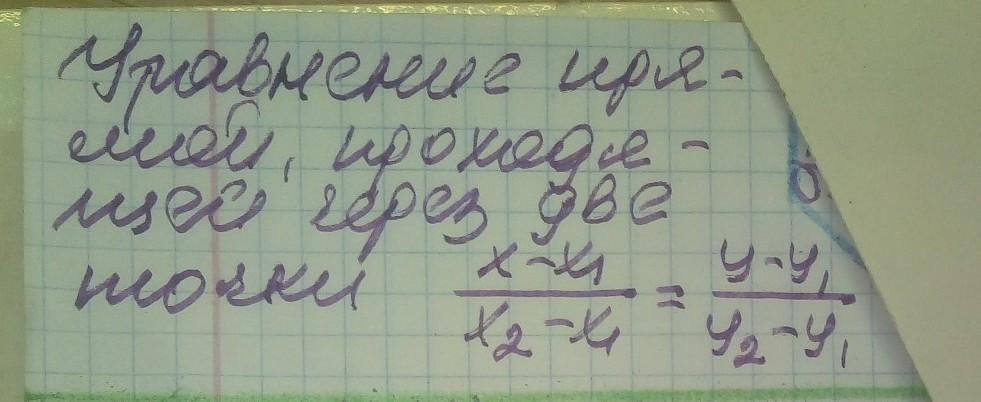 Уравнение пря-
мой, проходя-
щей через две
точки x-x₁/x₂-x₁ = y-y₁/y₂-y₁